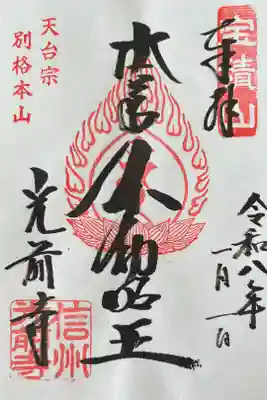 宝積山
奉拝
令和八年
一月
本尊
不動明王
天台宗
別格本山
光前寺
信州
光前寺